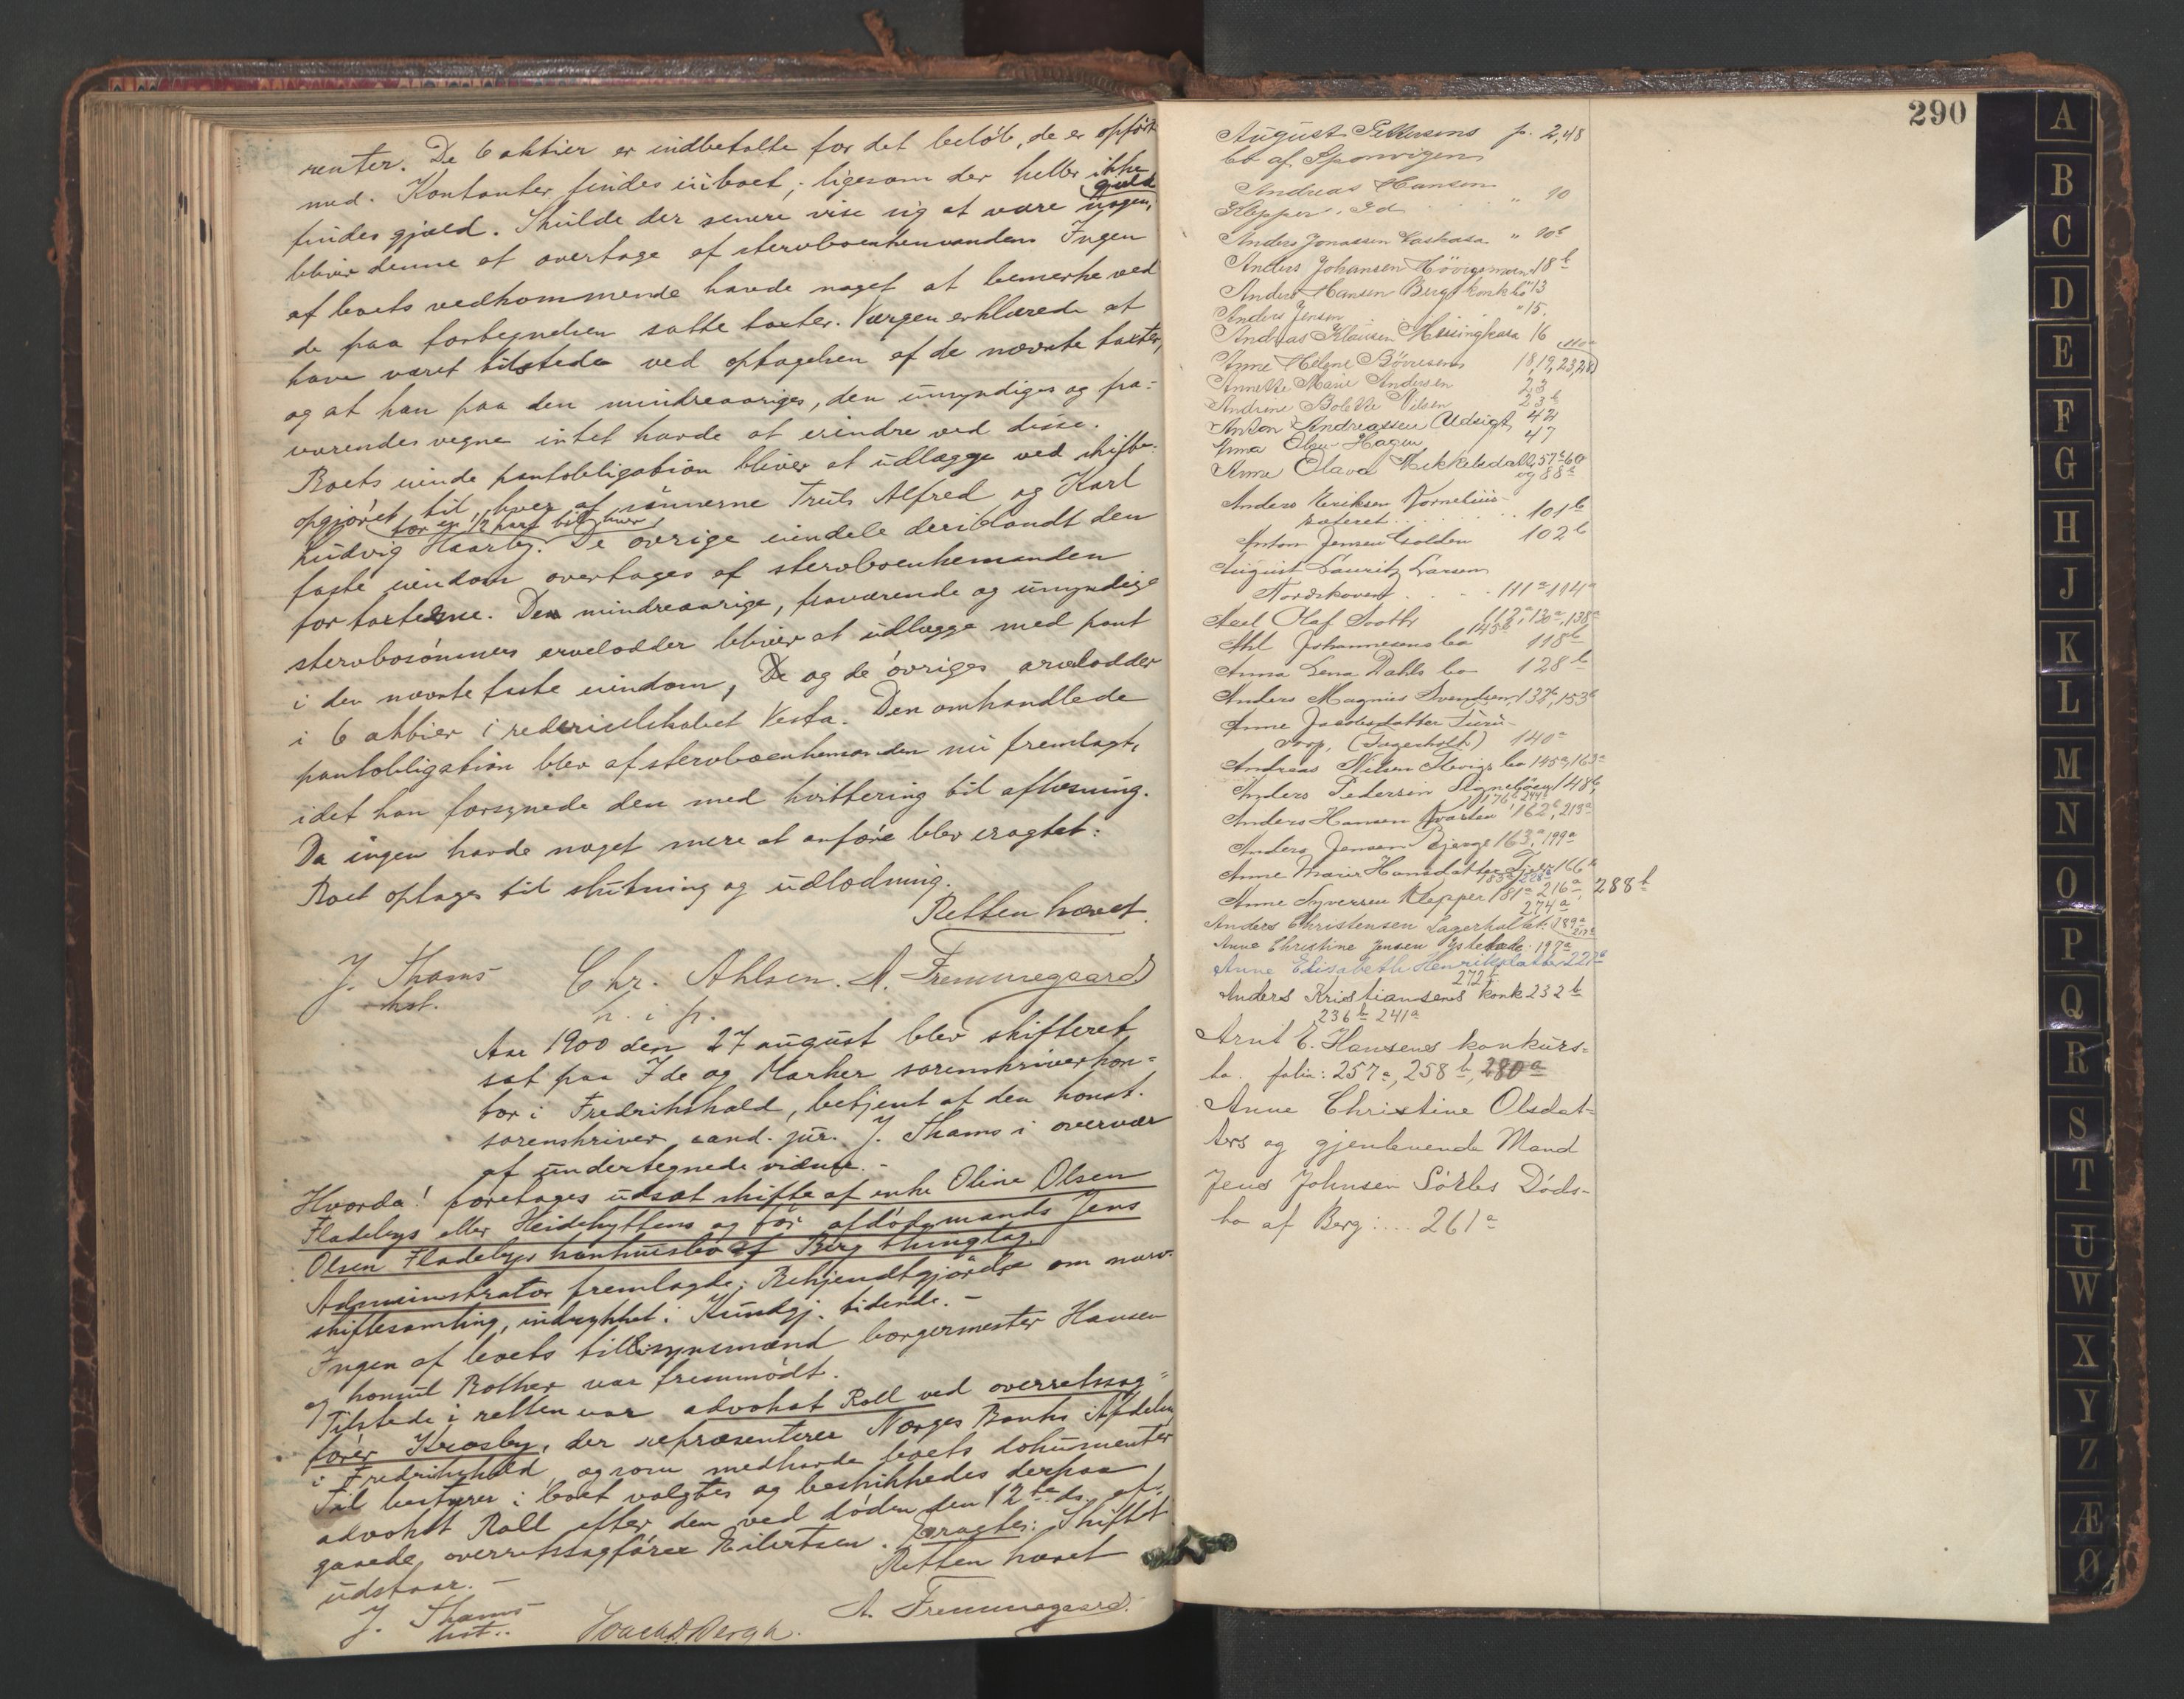 renter. De 6 aktier er indbetalte for det beløb, de er opført
med. Kontanter findes i boet, ligesom der heller ikke
findes gjæld. Skulde der senere vise sig at være nogen gjæld
bliver denne at overtage af stervboenkemanden. Ingen
af boets vedkommende havde noget at bemerke ved
de paa fortegnelsen satte taxter. Værgen erklærede at
have været tilstede ved optagelsen af de nævnte taxter,
og at han paa den mindreaariges, den umyndiges og fra-
værendes vegne intet havde at erindre ved disse.
Boets eiende pantobligation bliver at udlægge ved skifte-
opgjøret til hver af sønnerne Truls Alfred og Karl
for en 1/2 part til hver
Ludvig Haarby. De øvrige eiendele deriblandt den
faste eiendom overtages af stervboenkemanden
for taxterne. Den mindreaarige, fraværende og umyndige
stervbosønners arvelodder bliver at udlægge med pant
i den nævnte faste eiendom, De og de øvriges arvelodder
i 6 aktier i rederiselskabet Vesta. Den omhandlede
pantobligation blev af stervboenkemanden nu fremlagt,
idet han forsynede den med kvittering til aflæsning.
Da ingen havde noget mere at anføre blev eragtet:
Boet optages til slutning og udlodning.
Retten hævet.
J. Thams Chr. Ahlsen. A. Fremmegaard
kst. h. i p.
Aar 1900 den 27 august blev skifteret
sat paa Ide og Marker sorenskriverkon-
tor i Fredrikshald, betjent af den konst.
sorenskriver, cand. jur. J. Thams i overvær
af undertegnede vidner. -
Hvorda! foretages udsat skifte af enke Oline Olsen
Fladebys eller Heidehyttens og før afdøde mands Jens
Olsen Fladebys konkursbo af Berg thinglag.
Administrator fremlagde: Bekjendtgjørelse om nærv.
skiftesamling, indrykket i Kundgj. tidende. -
Ingen af boets tillsynsmænd borgermester Hansen
og konsul Rother var fremmødt.
Tilstede i retten var advokat Roll ved overretssag-
fører Kræsby, der repræsenterer Norges Banks Afdeling
i Fredrikshald, og som medhavde boets dokumenter
Til bestyrer i boet valgtes og beskikkedes derpaa
advokat Roll efter den ved døden den 12te ds. af-
gaaede, overretssagfører Eilertsen. Eragtes: Skiftet
udstaar. - Retten hævet
J. Thams A. Fremmegaard.
kst..
290
August Pettersens p. 2,48
bo af Sponvigen
Andreas Hansen
Klepper. Id " 10
Anders Jonassen " 10b
Anders Johansen 18b
Anders Hansen Berg konkbo " 13
Anders Jensen " 15.
Andreas Klausen 16
Anne Helene Børresens 18, 19, 23, 28
Annette Marie Andersen 23
Andrine Bolette Nilsen 23b
Anton Andreassen Udsigt 42
Anna Olsen Hagen 47
Anne Olava Mikkelsdatter 57a 60
og 88a
Anders Eriksen Kornelius-
rateret 101b
Anton Jensen Holden 102b
August Lauritz Larsen
Nordskoven 111a 114a
Axel Olaf 112a, 130a, 138a
145b
Ahl Johannesens bo 118b
Anna Lena Dahls bo 128b
Anders Magnus Svendsen, 132b, 153b
Anne Jacobsdatter
(Fagerholt) 140a
Andreas Nilsen bo 145a, 163a
Anders Pedersen 148b,
176b 244b
Anders Hansen 162b, 213a
Anders Jensen Bjerge 163a, 199a
Anne Marie Hansdatter 166b
183a 228a
Anne Syversen Klepper 181a 216a, 288b
274a
Anders Christensen Lagerholtet. 189a
Anne Christine Jensen Ystehede 197a
Anne Elisabeth Henriksdatter 221a
272b
Anders Kristiansens konk 232b
236b 241a
Arnt E. Hansens konkurs-
bo. folio: 257a, 258b, 280a
Anne Christine Olsdat-
ters og gjenlevende Mand
Jens Johnsen Sørlis Døds-
bo af Berg: .... 261a
A
B
C
D
E
F
G
H
J
K
L
M
N
O
P
Q
R
S
T
U
W
X
Y
Z
Æ
Ø